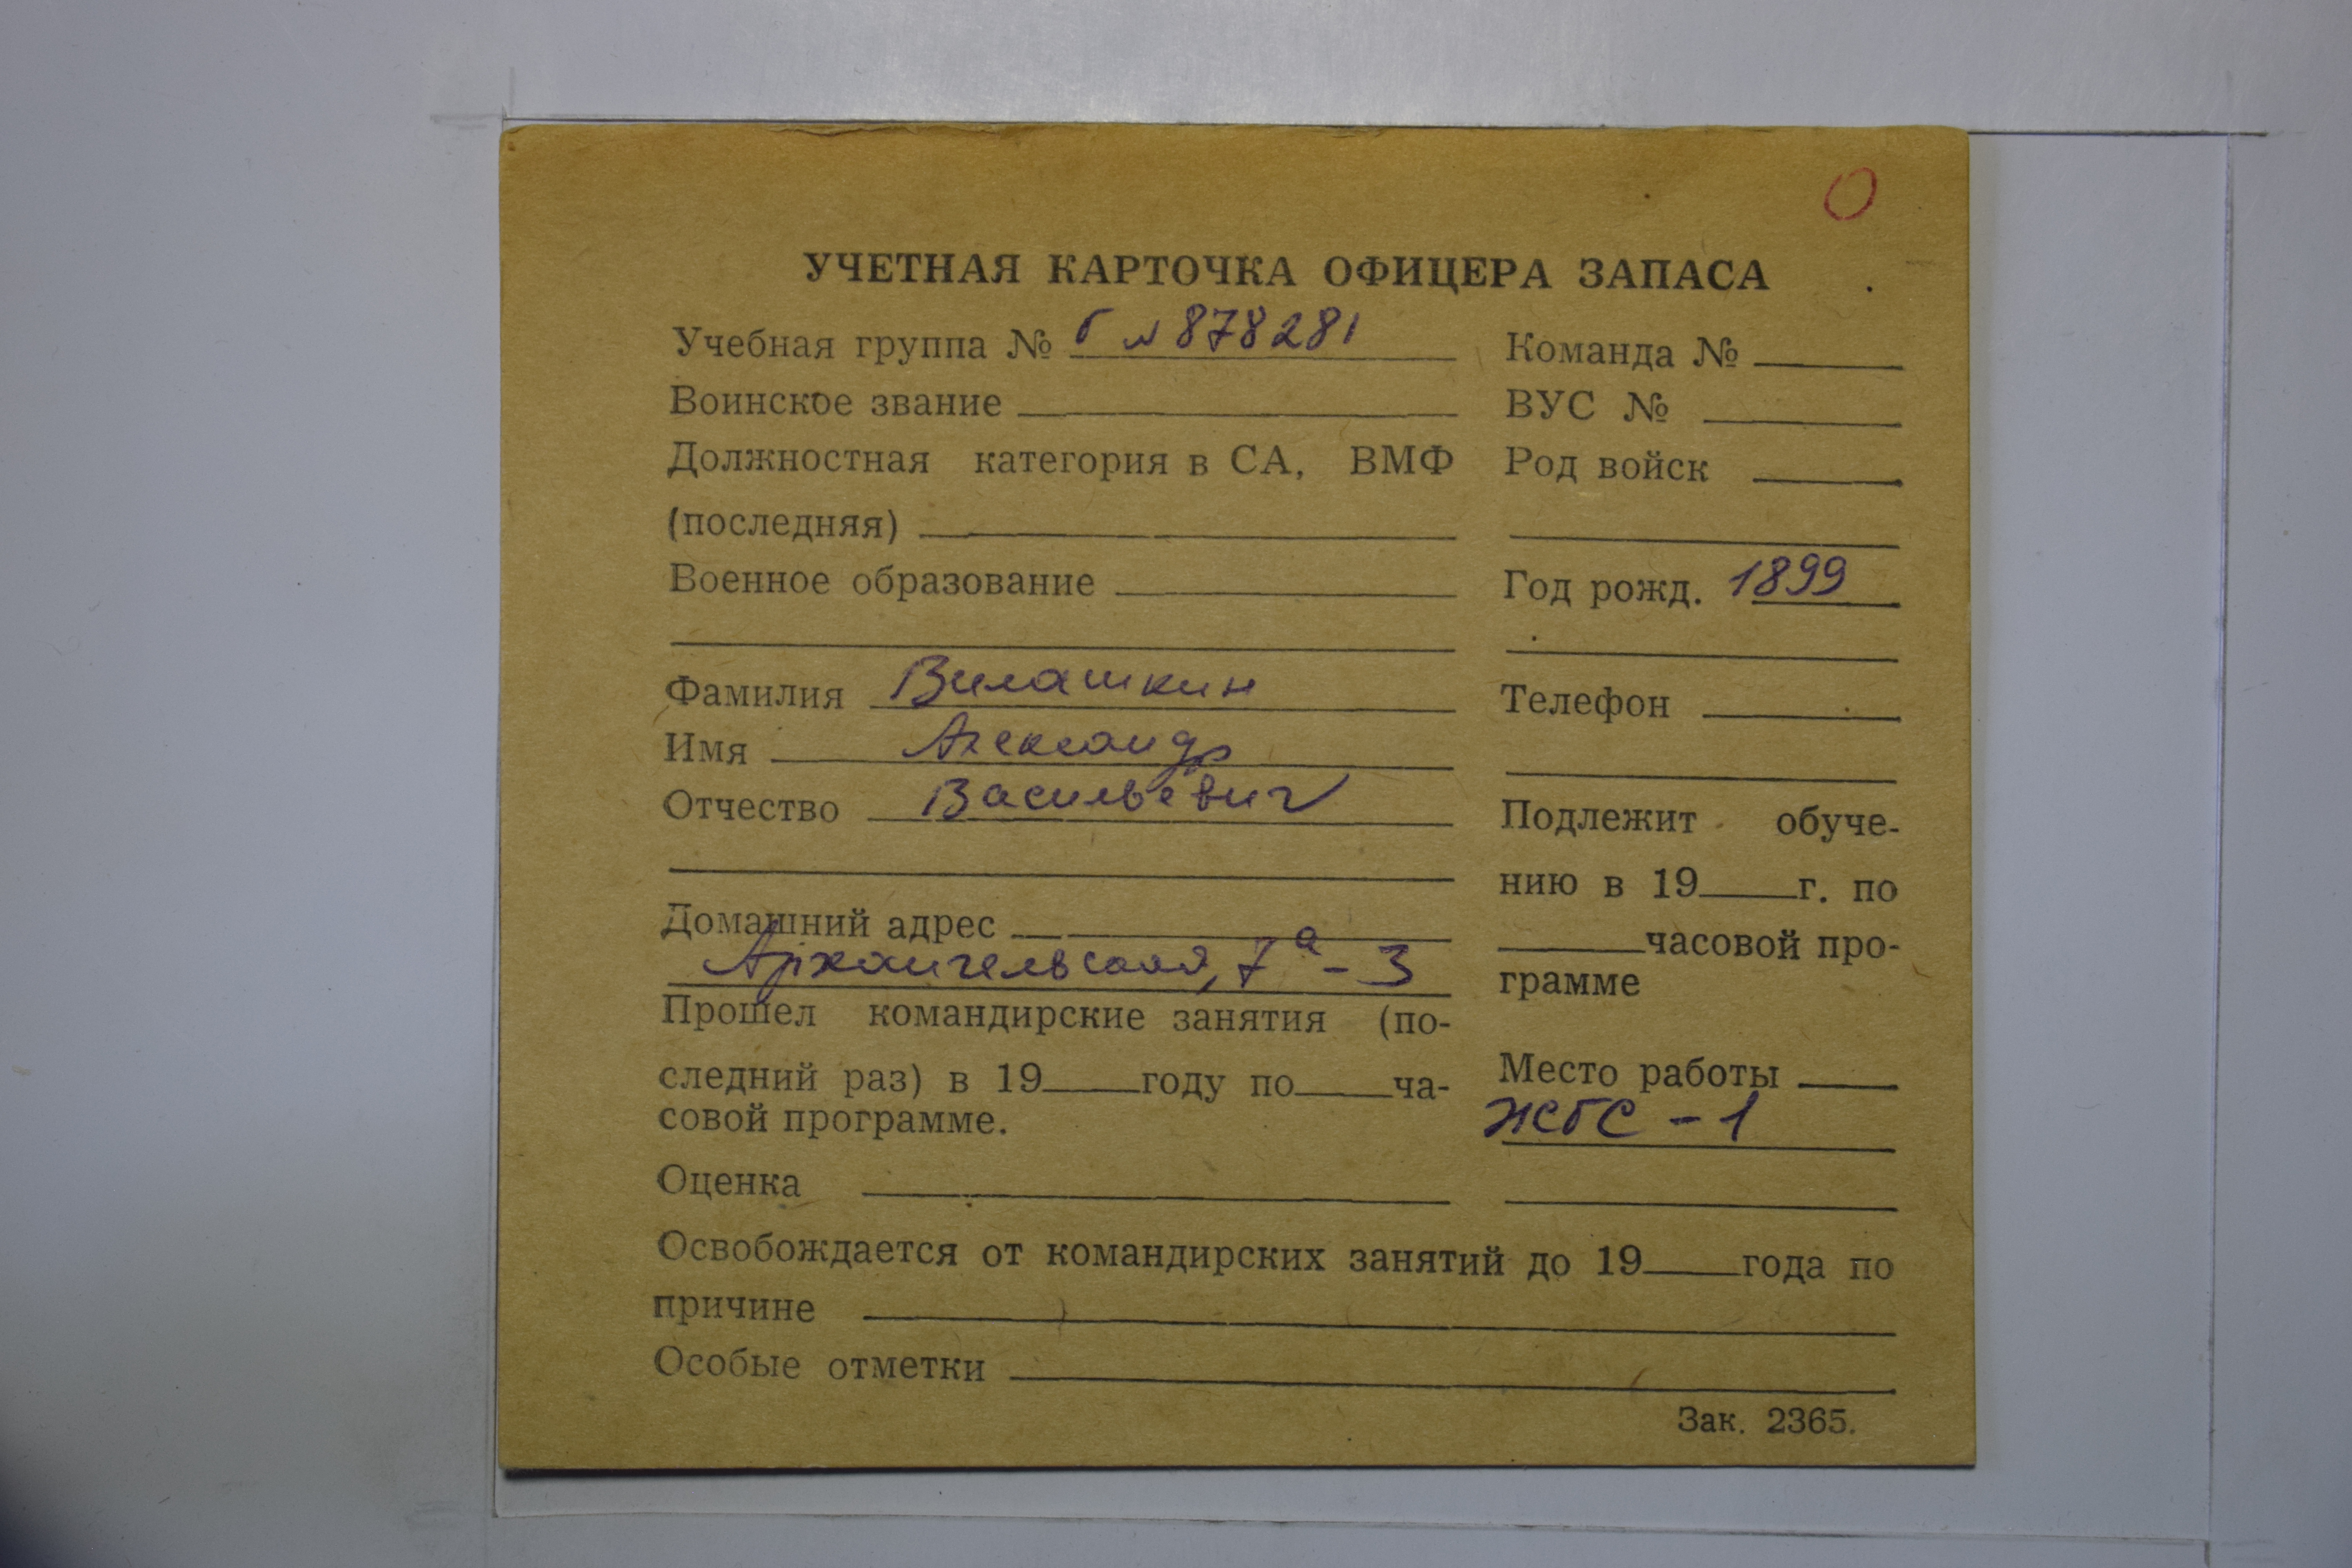 О
УЧЕТНАЯ КАРТОЧКА ОФИЦЕРА ЗАПАСА
Учебная группа № Г № 878281
Воинское звание
Должностная категория в СА, ВМФ
(последняя)
Военное образование
Фамилия Вилашкин
Имя Александр
Отчество Васильевич
Домашний адрес
Архангельская, 7а - 3
Прошел командирские занятия (по-
следний раз) в 19 году по ча-
совой программе.
Оценка
Команда №
ВУС №
Род войск
Год рожд. 1899
Телефон
Подлежит обуче-
нию в 19 г. по
часовой про-
грамме
Место работы
- 1
Освобождается от командирских занятий до 19 года по
причине
Особые отметки
Зак. 2365.